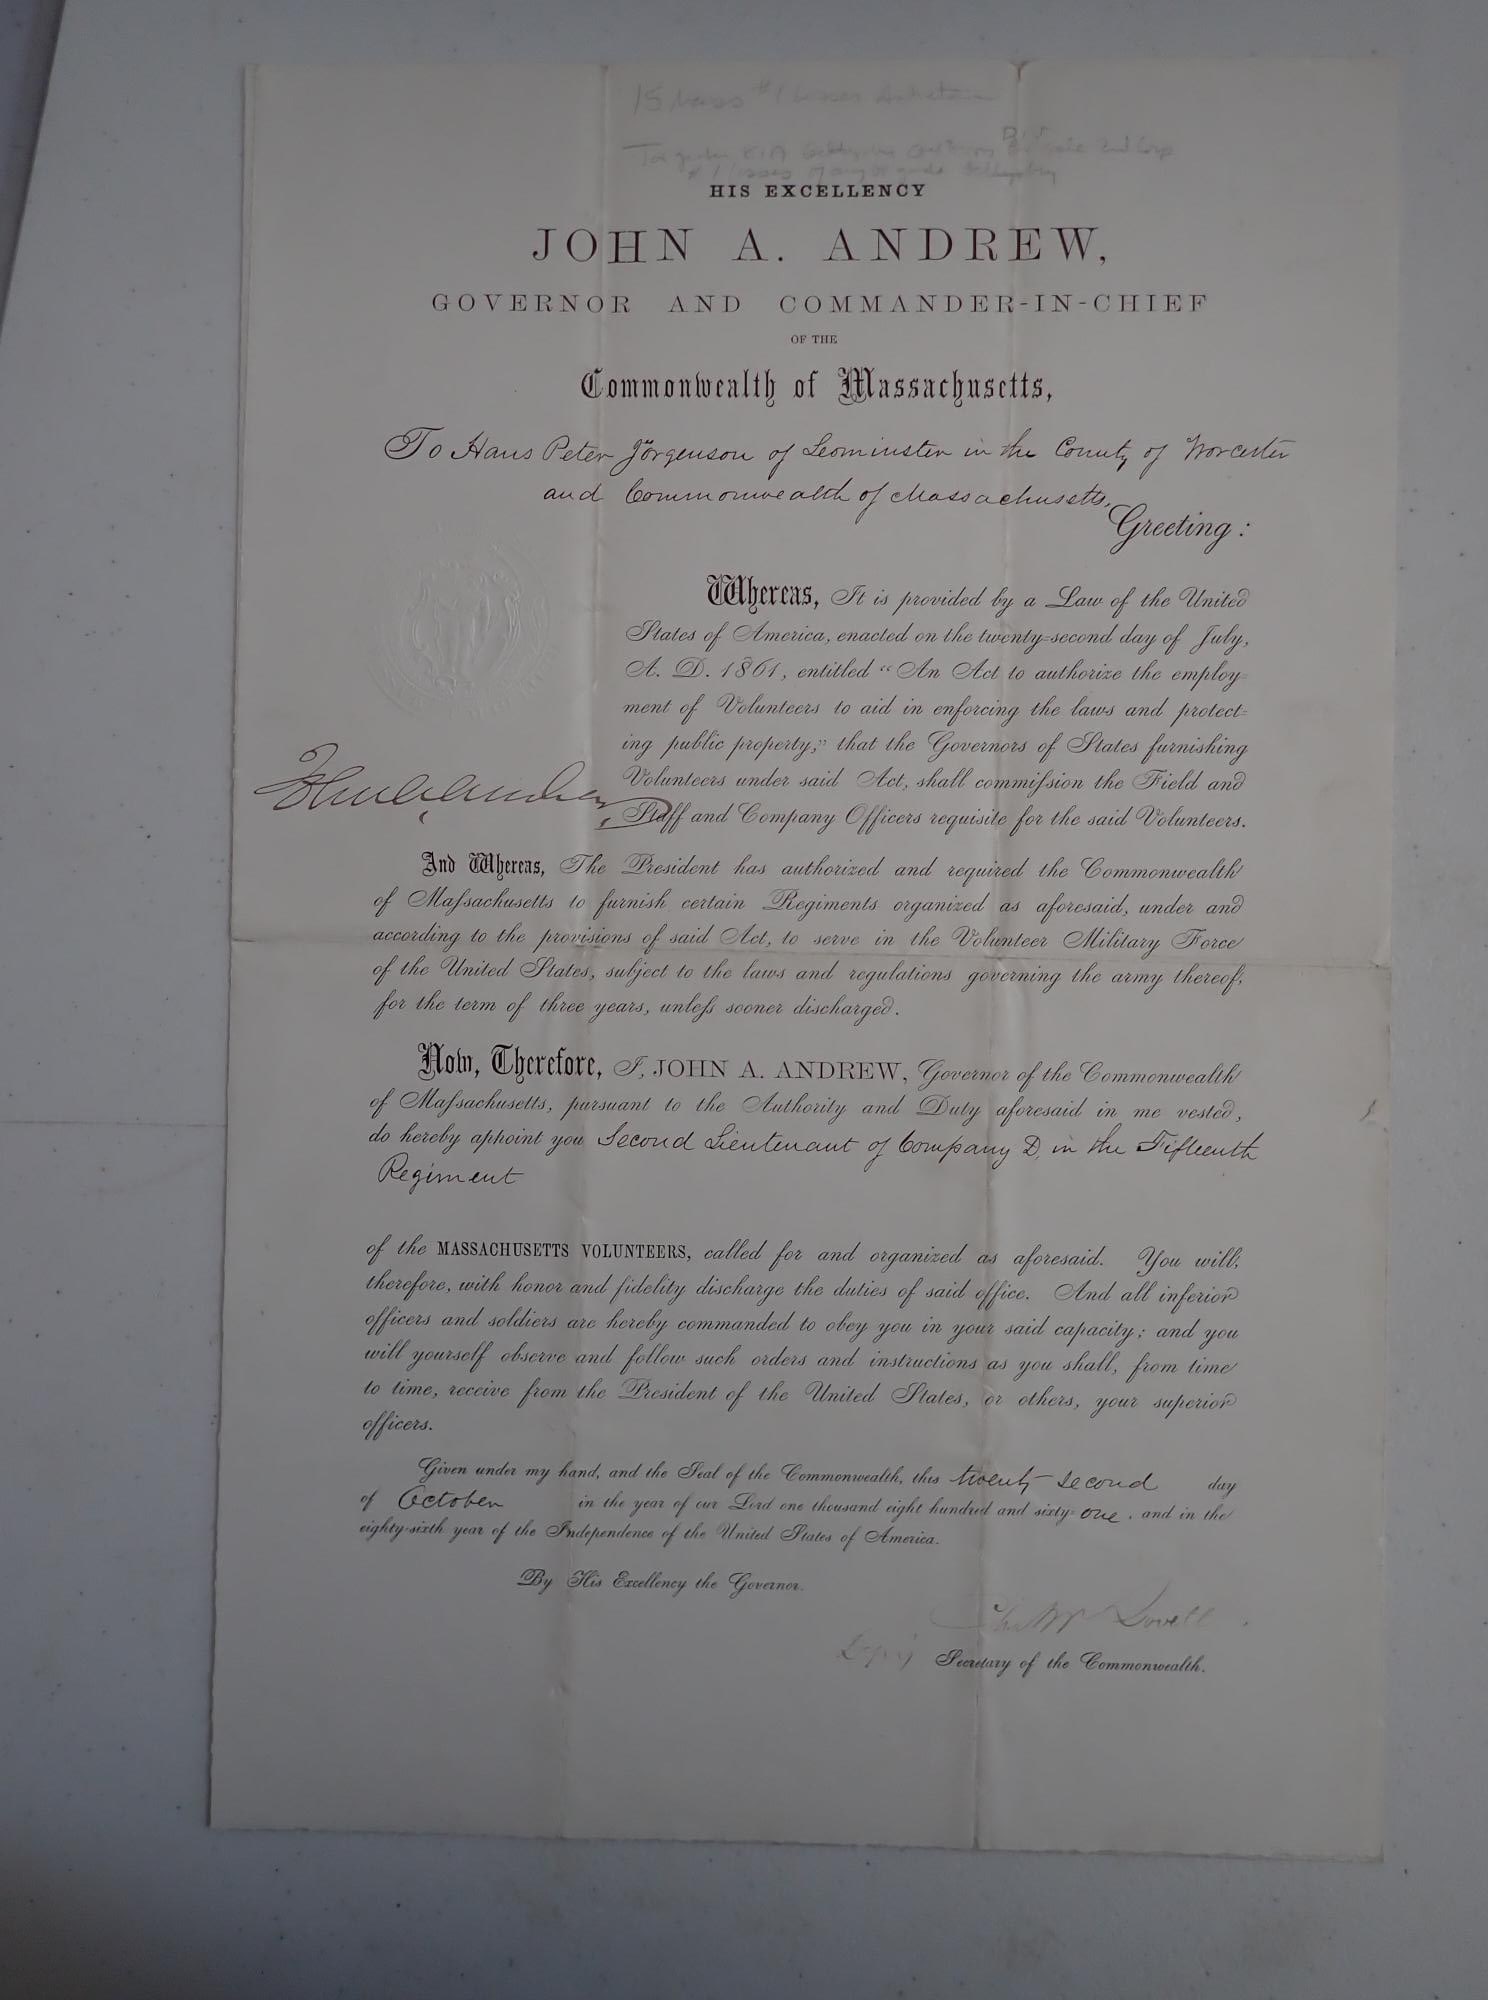 15 Mass #1 losses Antietam
KIA 2nd Corp
#1 losses
HIS EXCELLENCY
JOHN A. ANDREW,
GOVERNOR AND COMMANDER-IN-CHIEF
OF THE
Commonwealth of Massachusetts,
To Hans Peter Jörgenson of Leominster in the County of Worcester
and Commonwealth of Massachusetts,
Greeting:
Whereas, It is provided by a Law of the United
States of America, enacted on the twenty=second day of July,
A. D. 1861, entitled "An Act to authorize the employ=
ment of Volunteers to aid in enforcing the laws and protect=
ing public property," that the Governors of States furnishing
Volunteers under said Act, shall commission the Field and
John A Andrew,
Staff and Company Officers requisite for the said Volunteers.
And Whereas, The President has authorized and required the Commonwealth
of Massachusetts to furnish certain Regiments organized as aforesaid, under and
according to the provisions of said Act, to serve in the Volunteer Military Force
of the United States, subject to the laws and regulations governing the army thereof,
for the term of three years, unless sooner discharged.
Now, Therefore, I, JOHN A. ANDREW, Governor of the Commonwealth
of Massachusetts, pursuant to the Authority and Duty aforesaid in me vested,
do hereby appoint you Second Lieutenant of Company D, in the Fifteenth
Regiment
of the MASSACHUSETTS VOLUNTEERS, called for and organized as aforesaid. You will,
therefore, with honor and fidelity discharge the duties of said office. And all inferior
officers and soldiers are hereby commanded to obey you in your said capacity; and you
will yourself observe and follow such orders and instructions as you shall, from time
to time, receive from the President of the United States, or others, your superior
officers.
Given under my hand, and the Seal of the Commonwealth, this twenty second day
of October in the year of our Lord one thousand eight hundred and sixty-one, and in the
eighty-sixth year of the Independence of the United States of America.
By His Excellency the Governor.
Chas W Lovett
Depy Secretary of the Commonwealth.